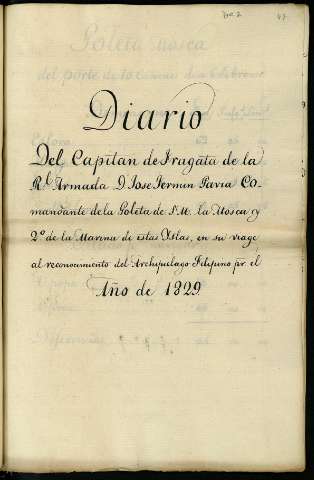 Diario
Del Capitan de Fragata de la
Rl. Armada D Jose Fermin Pavia Co-
mandante de la Goleta de S.M. la Mosca y
2º de la Marina de estas Yslas, en su viage
al reconocimiento del Archipielago Filipino por el
Año de 1829
Goleta Mosca
del porte de 10